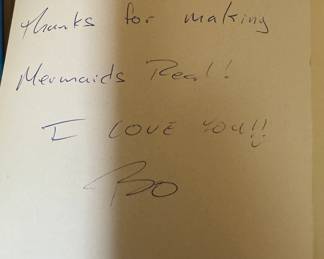 thanks for making
Mermaids Real!
I LOVE YOU!!
BO